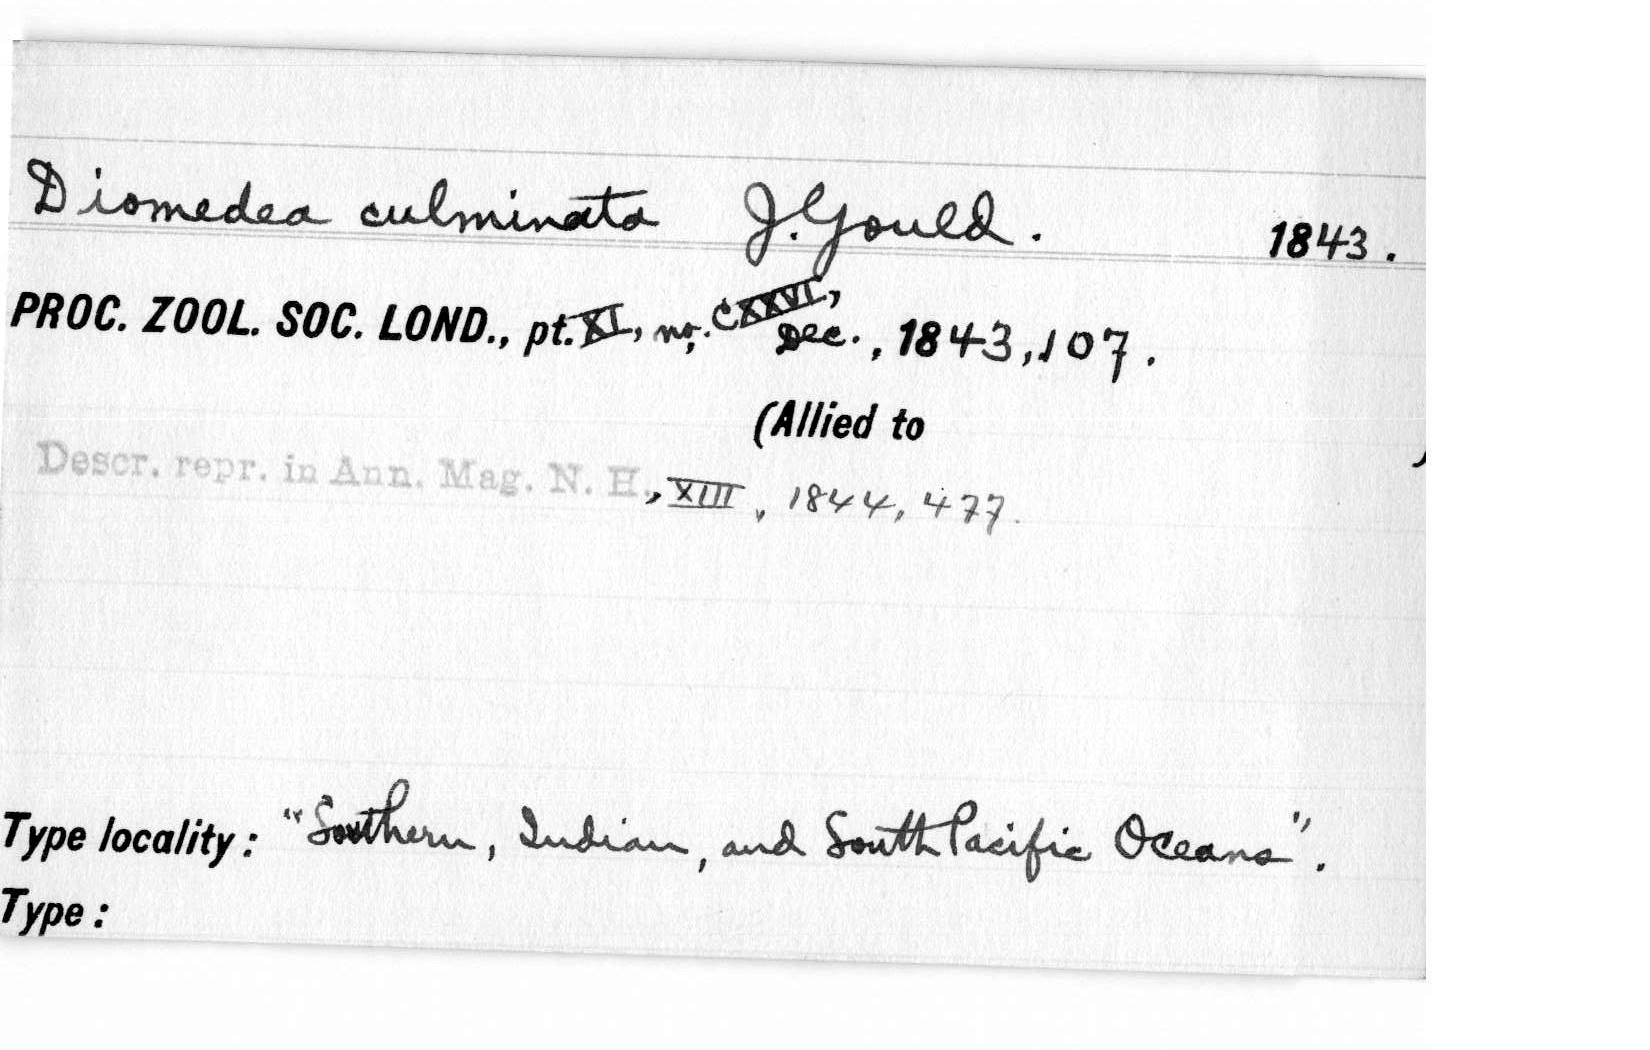 Diomedea culminata J. Gould. 1843.
PROC. ZOOL. SOC. LOND., pt. XI, no. CXXVI, Dec., 1843, 107.
(Allied to )
Descr. repr. in Ann. Mag. N. H., XIII, 1844, 477.
Type locality: "Southern, Indian, and South Pacific Oceans".
Type: